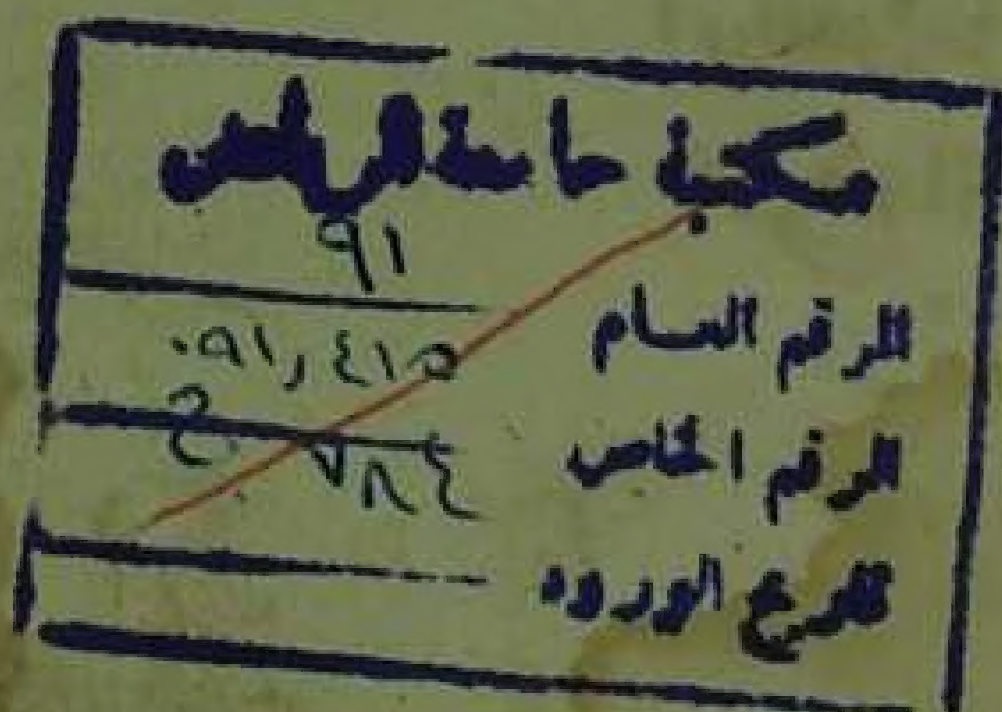 مكتبة جامعة الرياض
٩١
الرقم العام
٠٩١,٤١٥
الرقم الخاص
٧٨٤
تاريخ الورود